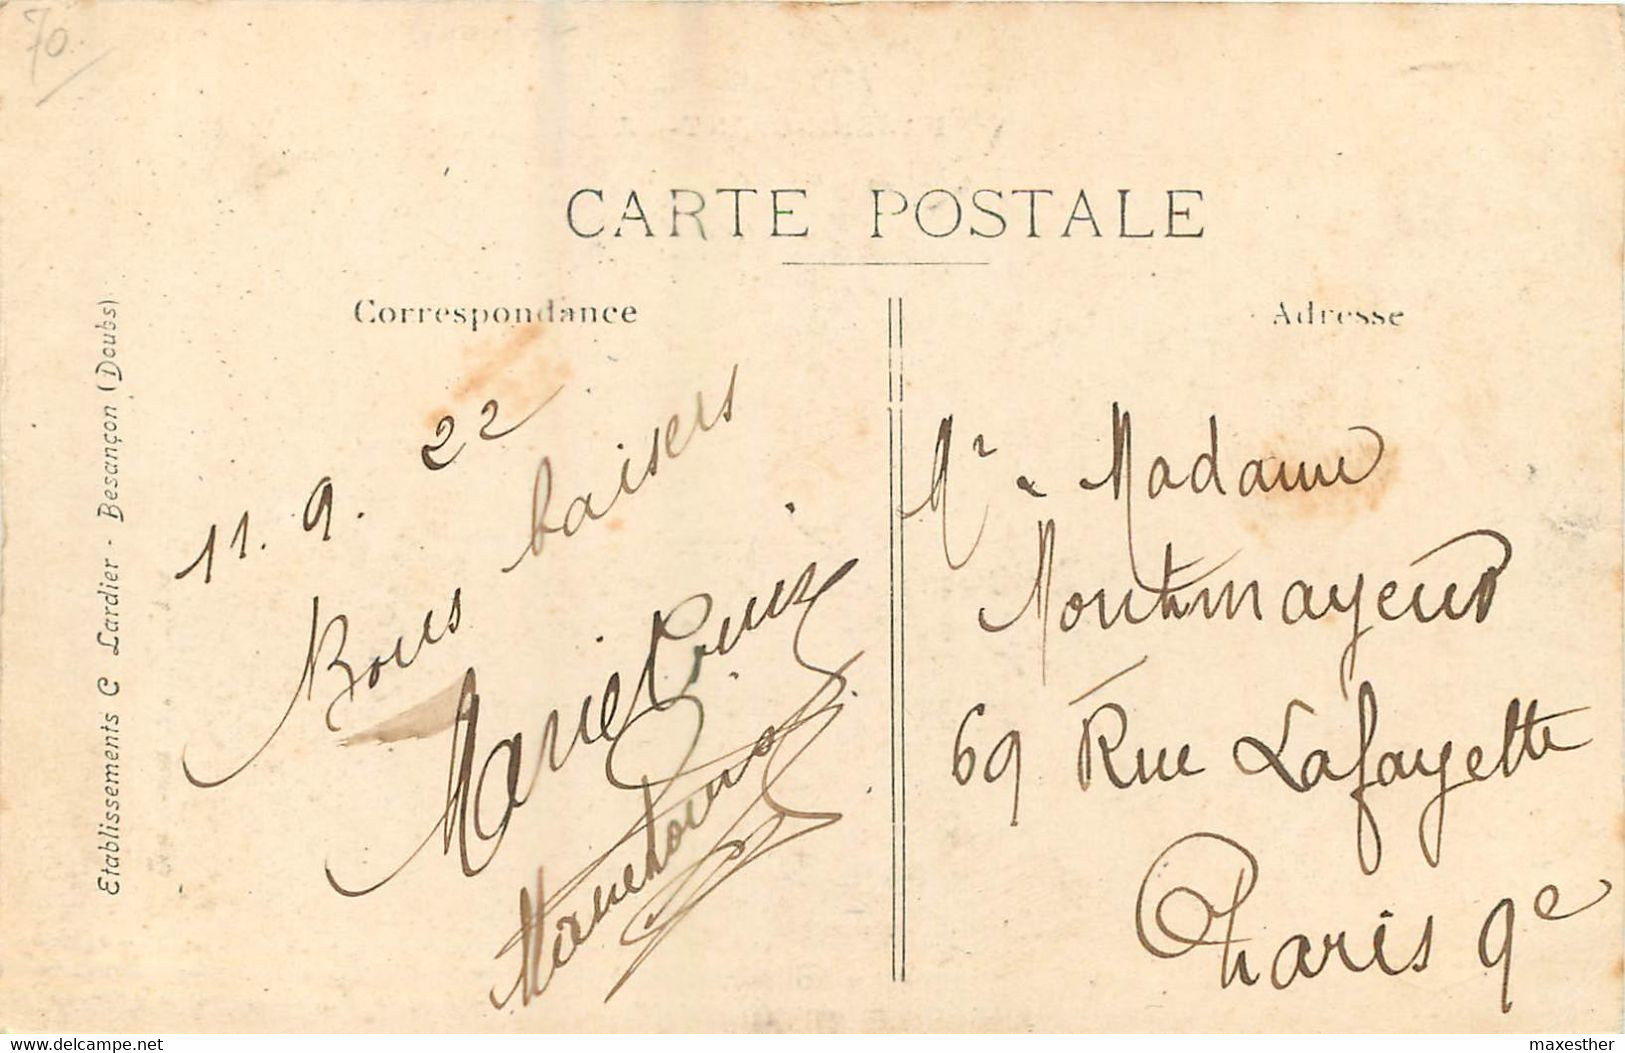 70
CARTE POSTALE
Correspondance
Adresse
Etablissements C Lardier - Besançon (Doubs)
11. 9. 22
Bons baisers
Marie Louise
Marie Louise
Mr & Madame
Montmayeur
69 Rue Lafayette
Paris 9e
www.delcampe.net
maxesther